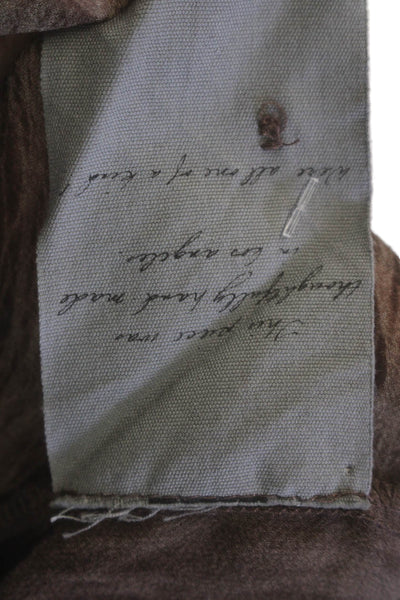 This piece was
thoughtfully hand made
in Los angeles.
We're all one of a kind!